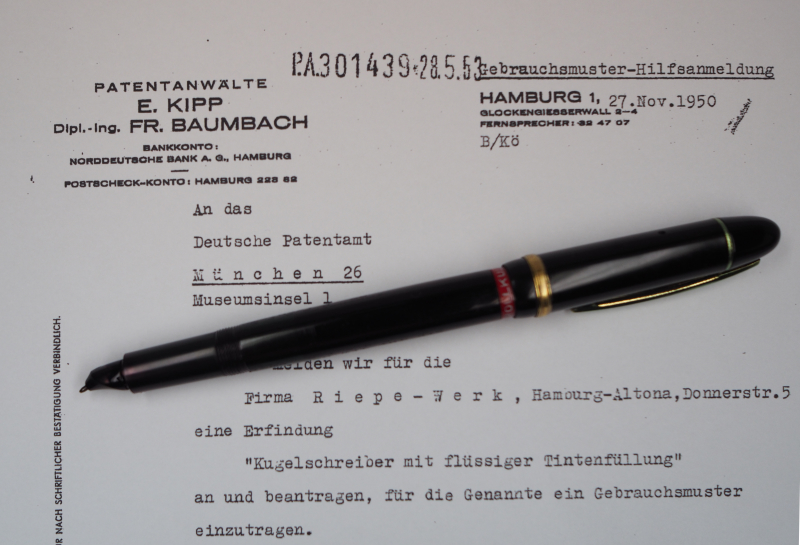 P.A.301439*28.5.53
Gebrauchsmuster-Hilfsanmeldung
PATENTANWÄLTE
E. KIPP
Dipl.-Ing. FR. BAUMBACH
BANKKONTO:
NORDDEUTSCHE BANK A. G., HAMBURG
POSTSCHECK-KONTO: HAMBURG 228 82
HAMBURG 1, 27.Nov.1950
GLOCKENGIESSERWALL 2-4
FERNSPRECHER: 32 47 07
B/Kö
An das
Deutsche Patentamt
M ü n c h e n 26
Museumsinsel 1
melden wir für die
Firma R i e p e - W e r k , Hamburg-Altona,Donnerstr.5
eine Erfindung
"Kugelschreiber mit flüssiger Tintenfüllung"
an und beantragen, für die Genannte ein Gebrauchsmuster
einzutragen.
NACH SCHRIFTLICHER BESTÄTIGUNG VERBINDLICH.